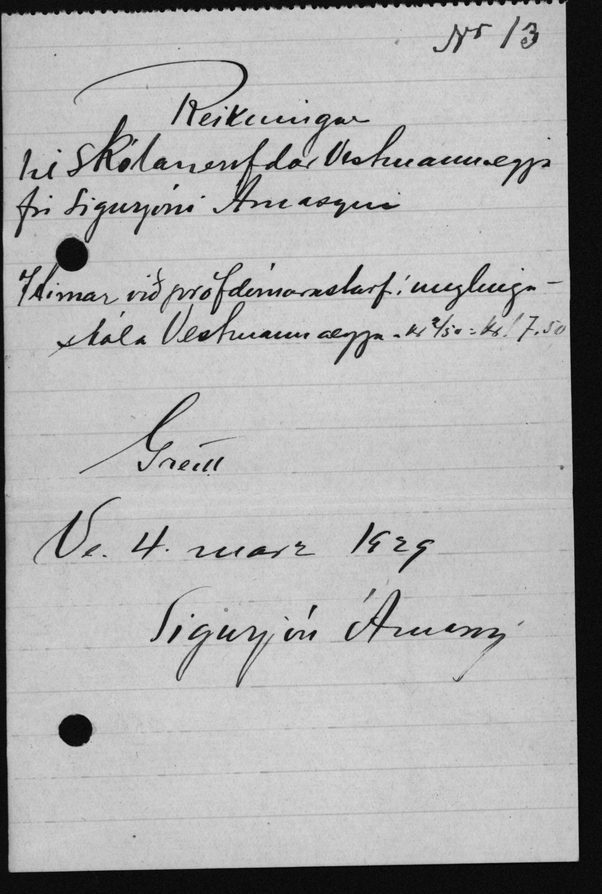 Nr 13
Reikningur
til Skólanefndar Vestmannaeyja
frá Sigurjóni Árnasyni
7 tímar við prófdómarastarf í unglinga-
skóla Vestmannaeyja - kr 2/50 = kr. 17.50
Greitt
Ve. 4. marz 1929
Sigurjón Árnason